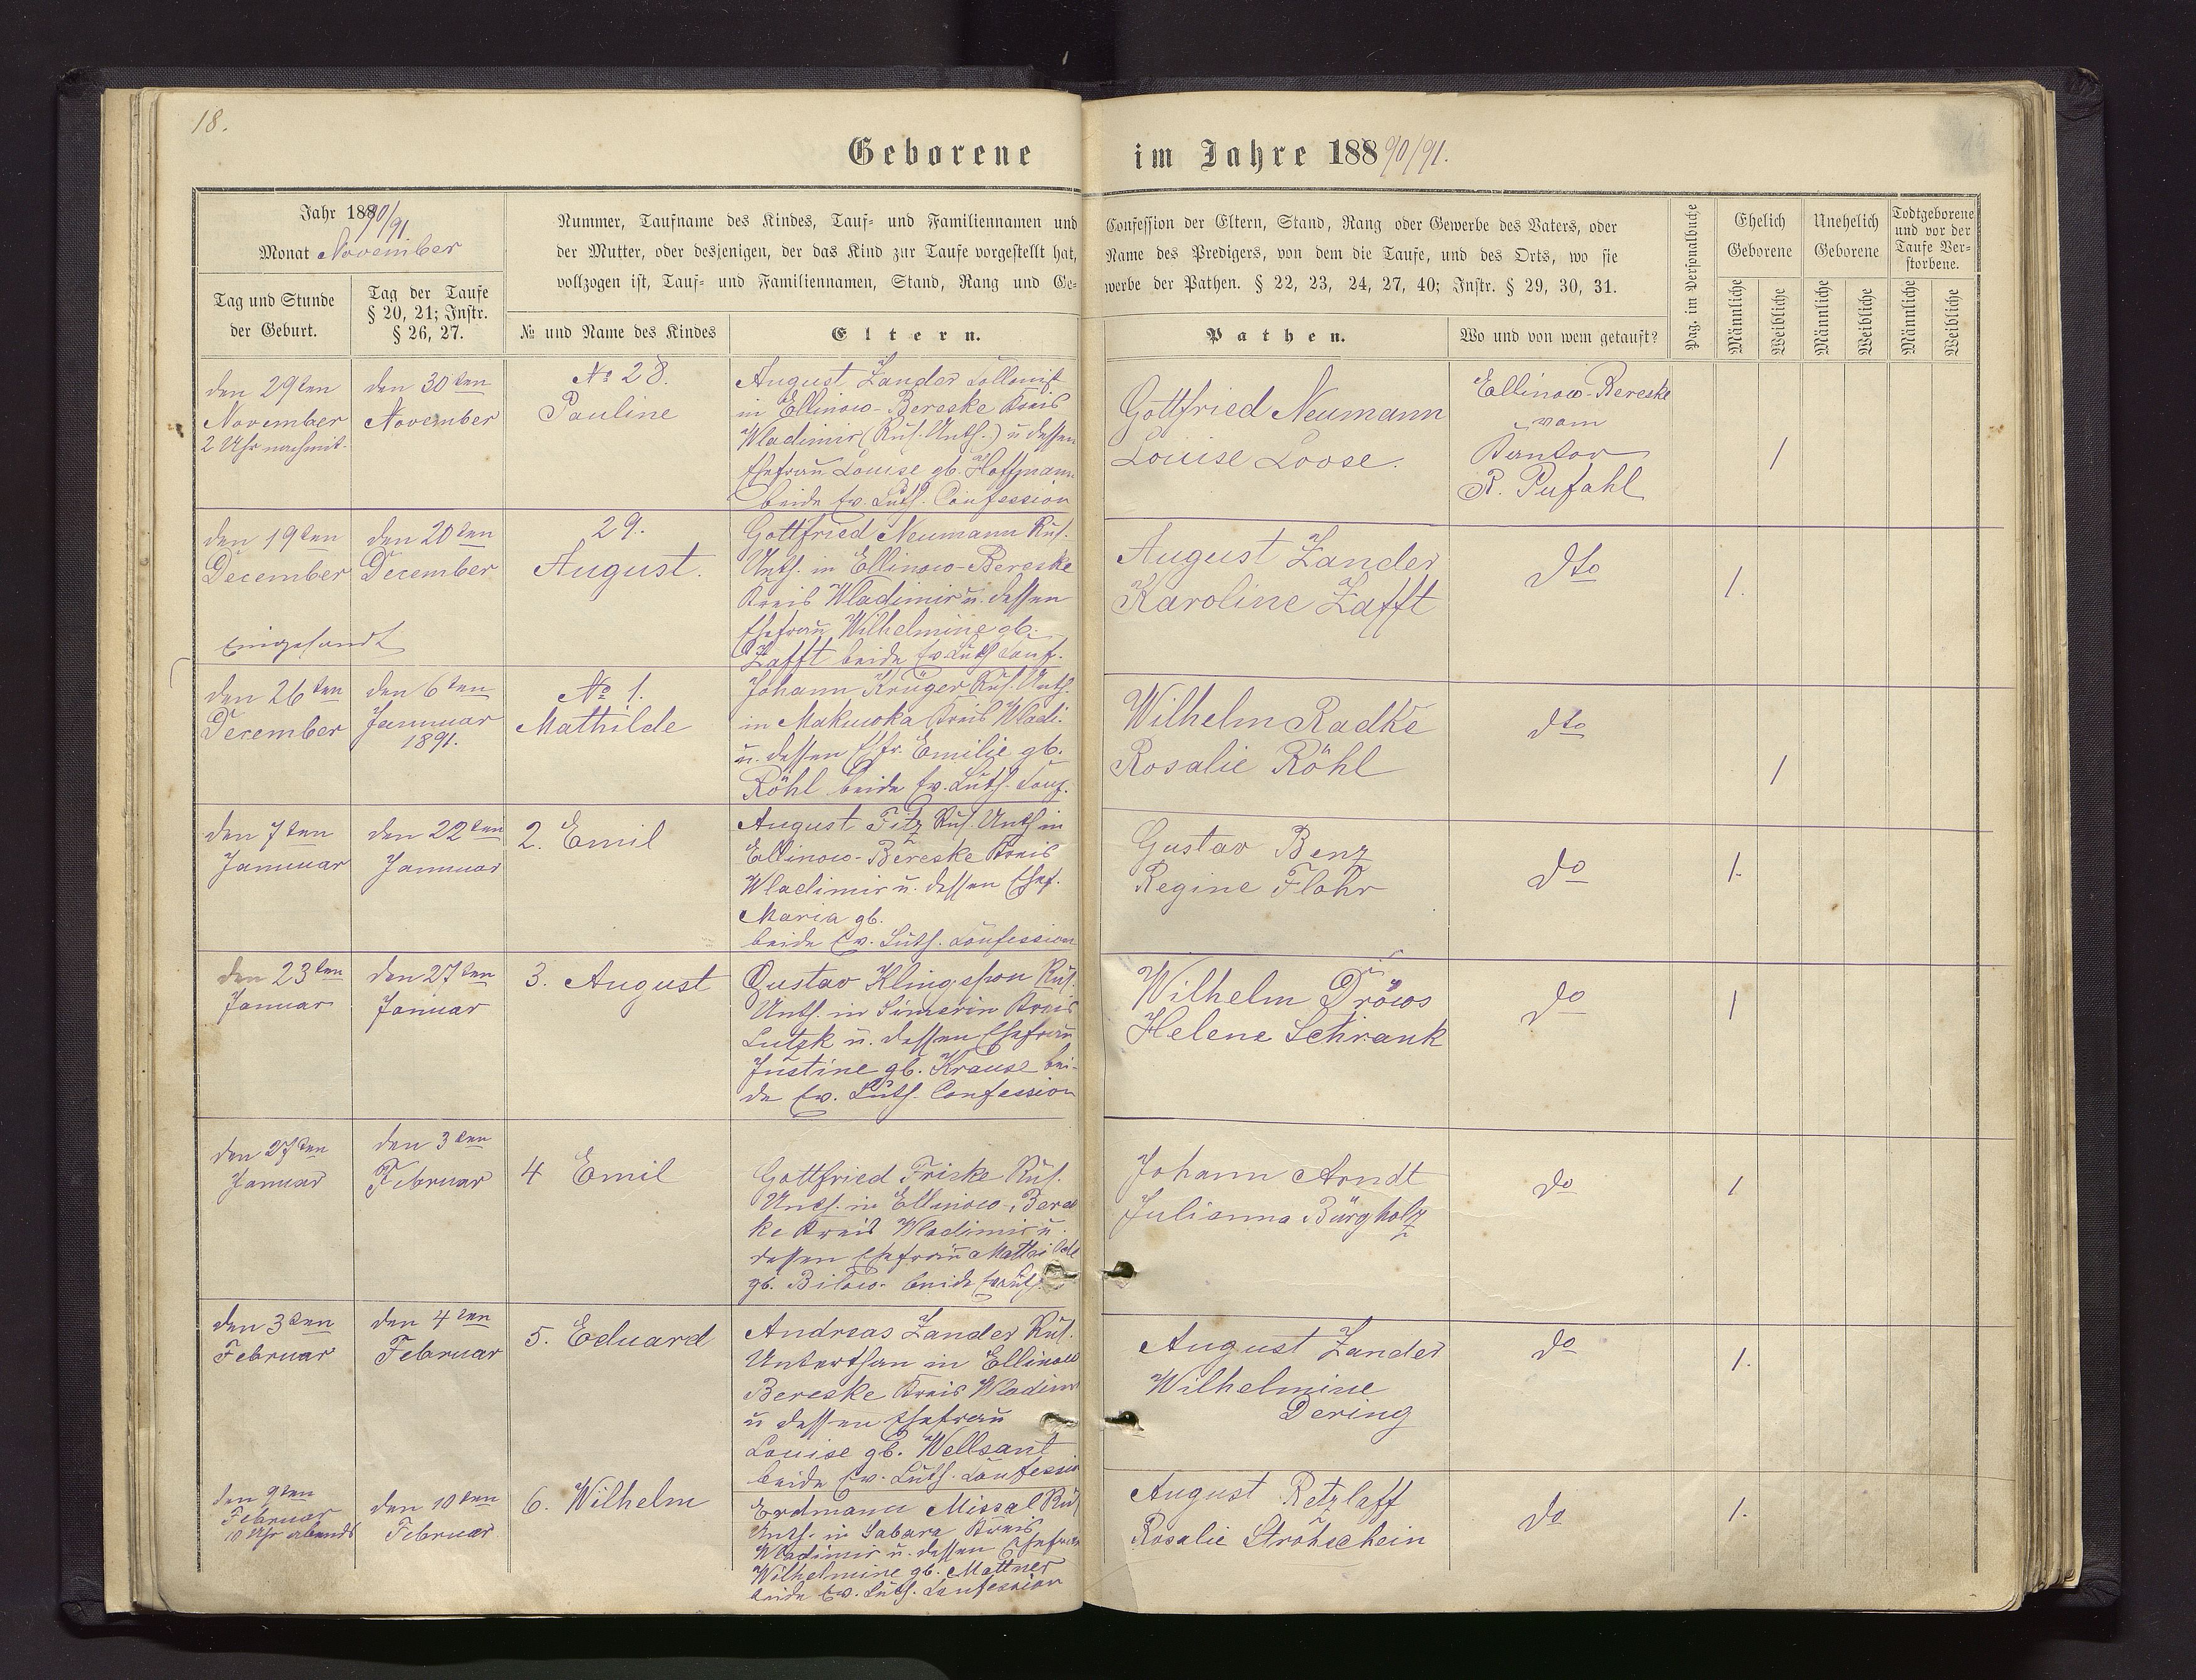 18.
Geborene im Jahre 18890/91.
Jahr 18890/91.
Monat November
Nummer, Taufname des Kindes, Tauf- und Familiennamen und
der Mutter, oder desjenigen, der das Kind zur Taufe vorgestellt hat,
vollzogen ist, Tauf- und Familiennamen, Stand, Rang und Ge-
Confession der Eltern, Stand, Rang oder Gewerbe des Vaters, oder
Name des Predigers, von dem die Taufe, und des Orts, wo sie
werbe der Pathen. § 22, 23, 24, 27, 40; Instr. § 29, 30, 31.
Tag und Stunde
der Geburt.
Tag der Taufe
§ 20, 21; Instr.
§ 26, 27.
№ und Name des Kindes
Eltern.
Pathen.
Wo und von wem getauft?
Pag. in Personalbuche
Ehelich
Geborene
Unehelich
Geborene
Todtgeborene
und vor der
Taufe Ver-
storbene.
Männliche
Weibliche
Männliche
Weibliche
Männliche
Weibliche
den 29ten
November
2 Uhr nachmit.
den 30ten
November
№ 28.
Pauline
August Zander Collonist
in Ellinow-Bereske Kreis
Wladimir (Rus. Unth.) u dessen
Ehefrau Louise gb. Hoffmann
beide Ev. Luth. Confession
Gottfried Neumann
Louise Loose.
Ellinow-Bereske
vom
Kantor
R. Pufahl
1
den 19ten
December
den 20ten
December
29.
August.
Gottfried Neumann Rus.
Unth. in Ellinow-Bereske
Kreis Wladimir u. dessen
Ehefrau Wilhelmine gb.
Zafft beide Ev. Luth Conf.
August Zander
Karoline Zafft
dto
1.
Eingesandt
den 26ten
December
den 6ten
Januar
1891.
№ 1.
Mathilde
Johann Krüger Rus. Unth.
in Makuwka Kreis Wladi.
u. dessen Ehfr. Emilie gb.
Röhl beide Ev. Luth. Conf.
Wilhelm Radke
Rosalie Röhl
dto
1
den 7ten
Januar
den 22ten
Januar
2. Emil
August Titz Rus. Unth in
Ellinow-Bereske Kreis
Wladimir u. dessen Ehef.
Maria gb.
beide Ev. Luth. Confession
Gustav Benz
Regine Flohr
do
1.
den 23ten
Januar
den 27ten
Januar
3. August
Gustav Klingspon Rus.
Unth. in Simerin Kreis
Lutzk u. dessen Ehefrau
Justine gb. Krause bei-
de Ev. Luth. Confession
Wilhelm Dröws
Helene Schrank
do
1
den 27ten
Januar
den 3ten
Februar
4 Emil
Gottfried Friske Rus.
Unth. in Ellinow-Beres
ke Kreis Wladimir u.
dessen Ehefrau Mathilde
gb. Bilow. beide
Johann Arndt
Julianna Bürgholz
do
1
den 3ten
Februar
den 4ten
Februar
5. Eduard
Andreas Zander Rus.
Unterthan in Ellinow
Bereske Kreis Wladimi
u dessen Ehefrau
Louise gb. Wellsant
beide Ev. Luth. Confessio
August Zander
Wilhelmine
Dering
do
1.
den 9ten
Februar
10 Uhr abends
den 10ten
Februar
6. Wilhelm
Erdmann Missal Rus
Unth. in Sabara Kreis
Wladimir u. dessen Ehefrau
Wilhelmine gb. Mattner
beide Ev. Luth. Confession
August Retzlaff
Rosalie Ströhschein
do
1.